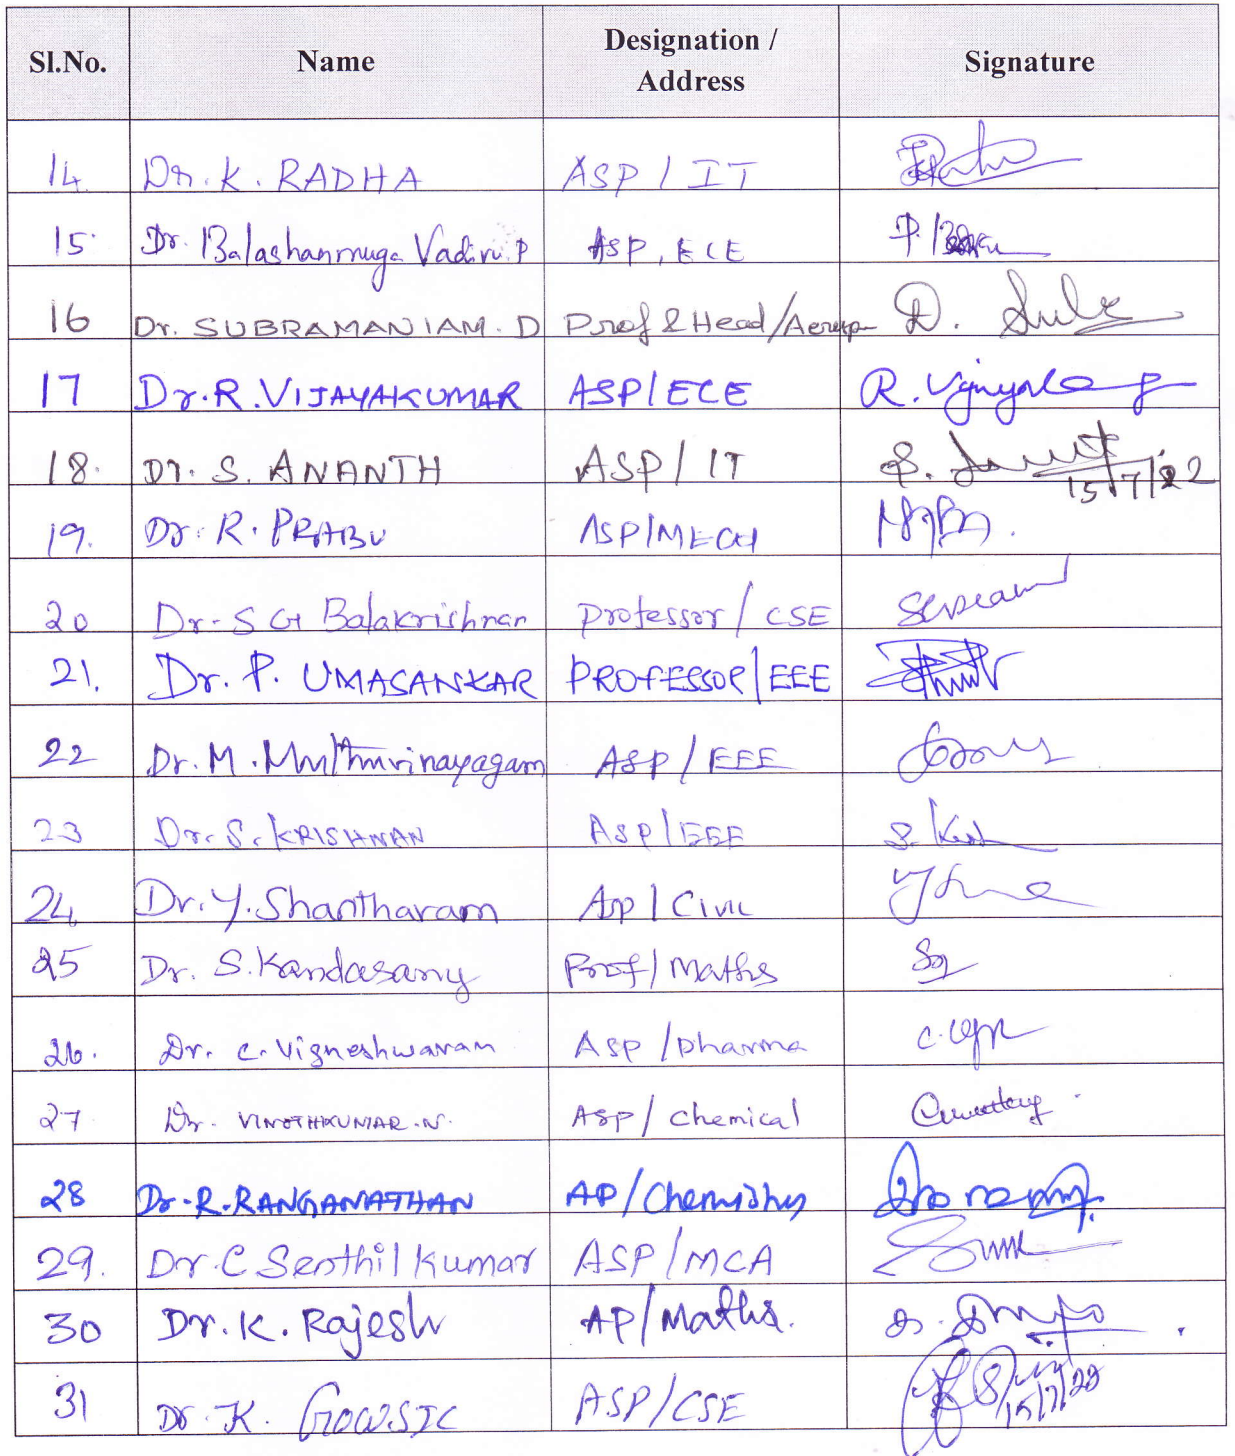 Sl.No. Name Designation / Address Signature
14. Dr. K. RADHA ASP / IT
15. Dr. Balashanmuga Vadivu. P ASP, ECE P.
16 Dr. SUBRAMANIAM. D Prof & Head/ D.
17 Dr. R. VIJAYAKUMAR ASP/ECE R.
18. Dr. S. ANANTH ASP/ IT S. 15/7/22
19. Dr. R. PRABU ASP/MECH
20 Dr. S G Balakrishnan Professor / CSE
21. Dr. P. UMASANKAR PROFESSOR/EEE
22 Dr. M. Muthuvinayagam ASP / EEE
23 Dr. S. KRISHNAN ASP/EEE S.
24 Dr. Y. Shantharam Ap / Civil
25 Dr. S. Kandasamy Prof / Maths
26. Dr. C. Vigneshwaran Asp / Pharma C.
27 Dr. VINOTHKUMAR. N. Asp / Chemical
28 Dr. R. RANGANATHAN AP/Chemistry
29. Dr C Senthil kumar ASP/MCA
30 Dr. K. Rajesh AP/Maths.
31 Dr. K. GOWSIC ASP/CSE 15/7/22